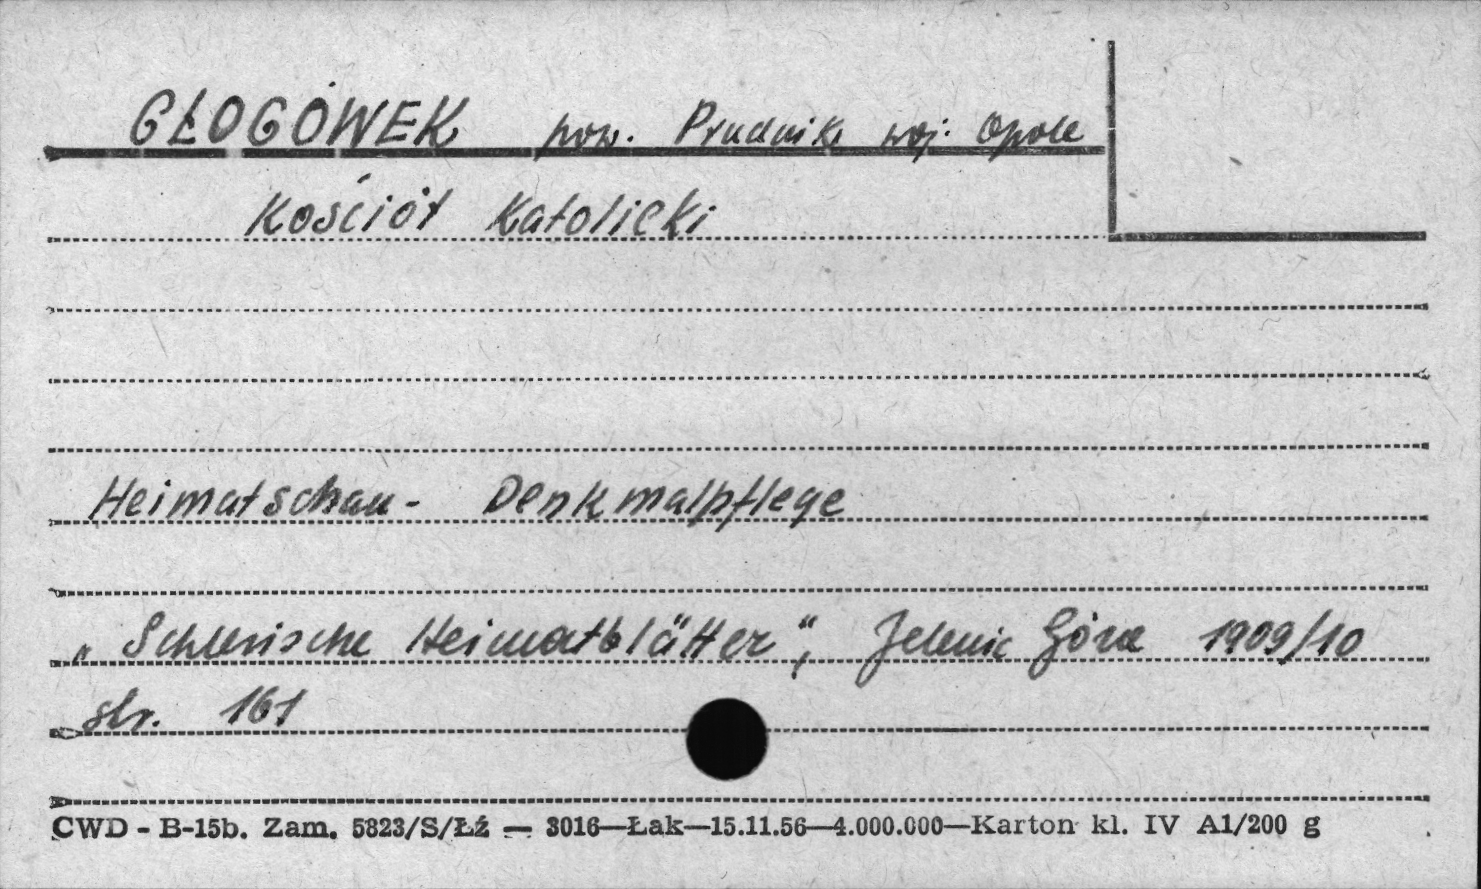 GŁOGÓWEK pow. Prudnik woj. Opole
Kościół Katolicki
Heimatschau - Denkmalpflege
„Schlesische Heimatblätter", Jelenia Góra 1909/10
str. 161
CWD - B-15b. Zam. 5823/S/Łź — 3016—Łak—15.11.56—4.000.000—Karton kl. IV A1/200 g